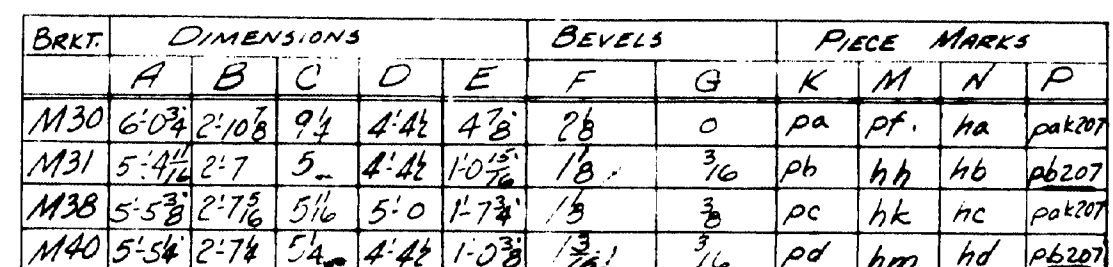 BRKT. DIMENSIONS BEVELS PIECE MARKS
A B C D E F G K M N P
M30 6'-0 3/4 2'-10 7/8 9 1/4 4'-4 1/2 4 7/8 2 1/8 0 pa pf. ha pak207
M31 5'-4 11/16 2'-7 5 4'-4 1/2 1'-0 15/16 1 1/8 3/16 pb hh hb pb207
M38 5'-5 3/8 2'-7 5/16 5 1/16 5'-0 1'-7 3/4 1 1/8 3/8 pc hk hc pak207
M40 5'-5 1/4 2'-7 1/4 5 1/4 4'-4 1/2 1'-0 3/8 1 3/16 3/16 pd hm hd pb207